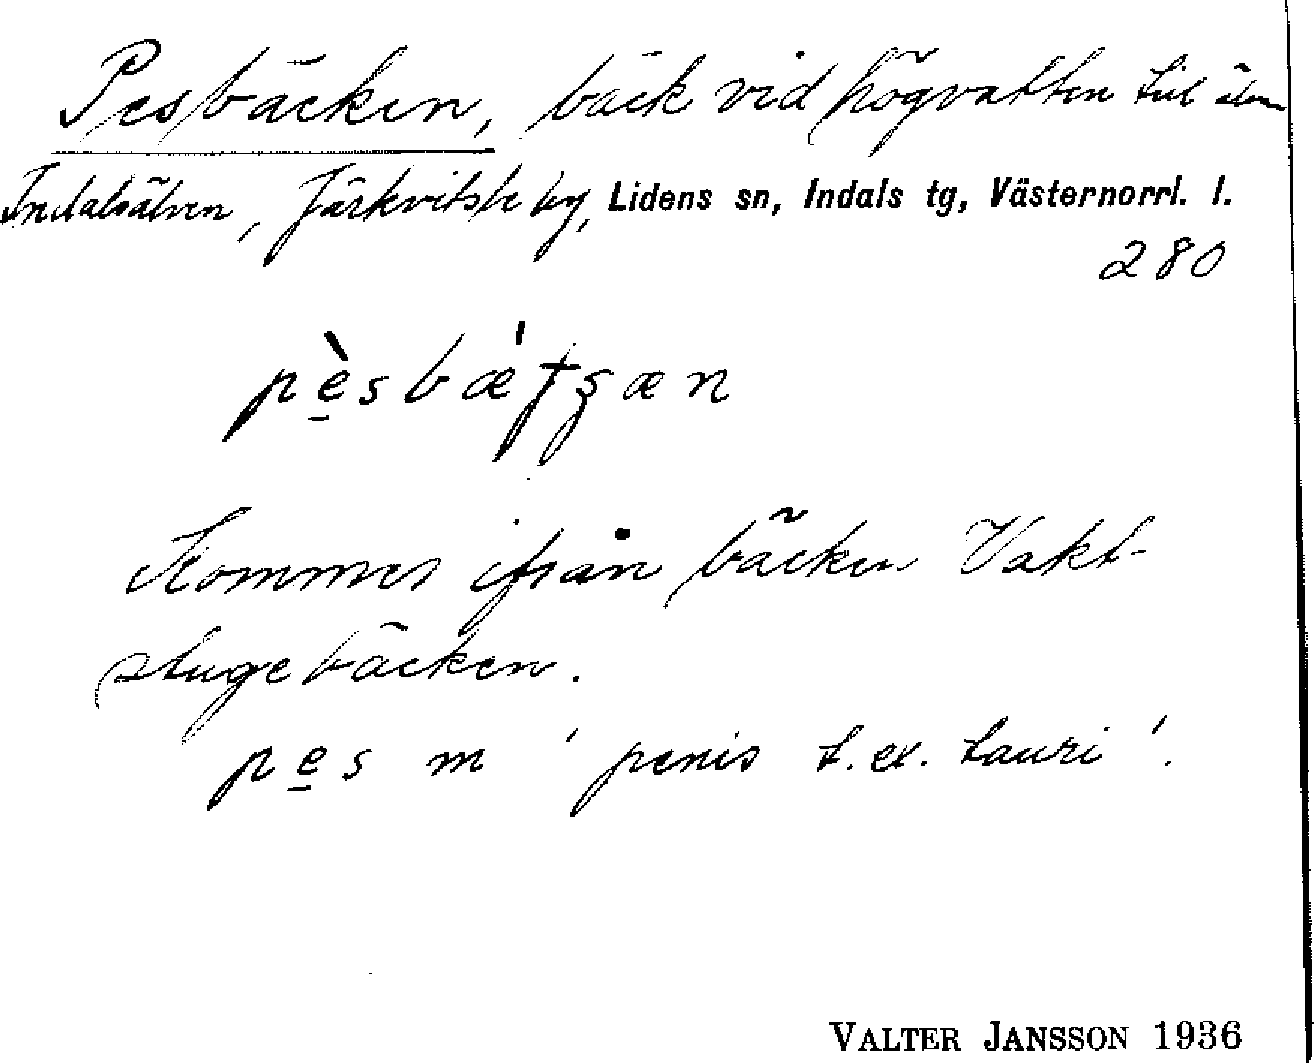 Pesbäcken, bäck vid högvatten till älven
Indalsälven, Järkvitsle by, Lidens sn, Indals tg, Västernorrl. l.
280
pè̱sbǽtʂæn
Kommer ifrån bäcken Vakt-
stugebäcken.
pe̱s m 'penis t.ex. tauri'.
VALTER JANSSON 1936